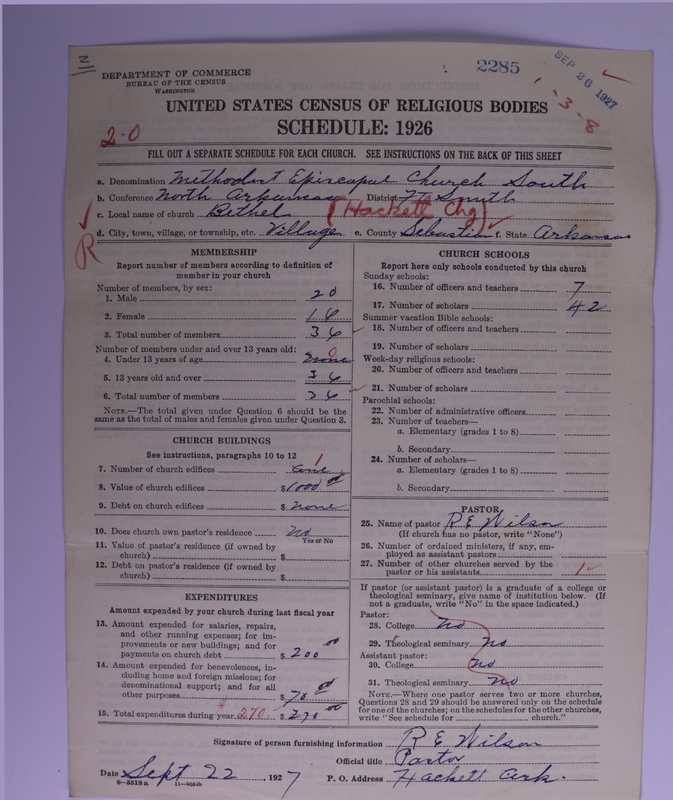 N
DEPARTMENT OF COMMERCE
BUREAU OF THE CENSUS
WASHINGTON
2285
SEP 26 1927
1-3-8
UNITED STATES CENSUS OF RELIGIOUS BODIES
SCHEDULE: 1926
2-0
FILL OUT A SEPARATE SCHEDULE FOR EACH CHURCH. SEE INSTRUCTIONS ON THE BACK OF THIS SHEET
a. Denomination Methodist Episcopal Church South
b. Conference North Arkansas District Ft Smith
c. Local name of church Bethel (Hackett Chg)
d. City, town, village, or township, etc. Village e. County Sebastian f. State Arkansas
R
MEMBERSHIP
Report number of members according to definition of
member in your church
Number of members, by sex:
1. Male 20
2. Female 16
3. Total number of members 36
Number of members under and over 13 years old:
4. Under 13 years of age None 0
5. 13 years old and over 36
6. Total number of members 36
NOTE.—The total given under Question 6 should be the
same as the total of males and females given under Question 3.
CHURCH BUILDINGS
See instructions, paragraphs 10 to 12
7. Number of church edifices one 1
8. Value of church edifices $1000 00
9. Debt on church edifices $ none
10. Does church own pastor's residence No
Yes or No
11. Value of pastor's residence (if owned by
church) $
12. Debt on pastor's residence (if owned by
church) $
EXPENDITURES
Amount expended by your church during last fiscal year
13. Amount expended for salaries, repairs,
and other running expenses; for im-
provements or new buildings; and for
payments on church debt $ 200 00
14. Amount expended for benevolences, in-
cluding home and foreign missions; for
denominational support; and for all
other purposes $ 70 00
15. Total expenditures during year 270 $ 270 00
CHURCH SCHOOLS
Report here only schools conducted by this church
Sunday schools:
16. Number of officers and teachers 7
17. Number of scholars 42
Summer vacation Bible schools:
18. Number of officers and teachers
19. Number of scholars
Week-day religious schools:
20. Number of officers and teachers
21. Number of scholars
Parochial schools:
22. Number of administrative officers
23. Number of teachers—
a. Elementary (grades 1 to 8)
b. Secondary
24. Number of scholars—
a. Elementary (grades 1 to 8)
b. Secondary
PASTOR
25. Name of pastor R E Wilson
(If church has no pastor, write "None")
26. Number of ordained ministers, if any, em-
ployed as assistant pastors
27. Number of other churches served by the
pastor or his assistants 1
If pastor (or assistant pastor) is a graduate of a college or
theological seminary, give name of institution below. (If
not a graduate, write "No" in the space indicated.)
Pastor:
28. College No
29. Theological seminary No
Assistant pastor:
30. College No
31. Theological seminary No
NOTE.—Where one pastor serves two or more churches,
Questions 28 and 29 should be answered only on the schedule
for one of the churches; on the schedules for the other churches,
write "See schedule for church."
Signature of person furnishing information R E Wilson
Official title Pastor
Date Sept 22, 1927 P. O. Address Hackett Ark.
8-5518a 11-9054b